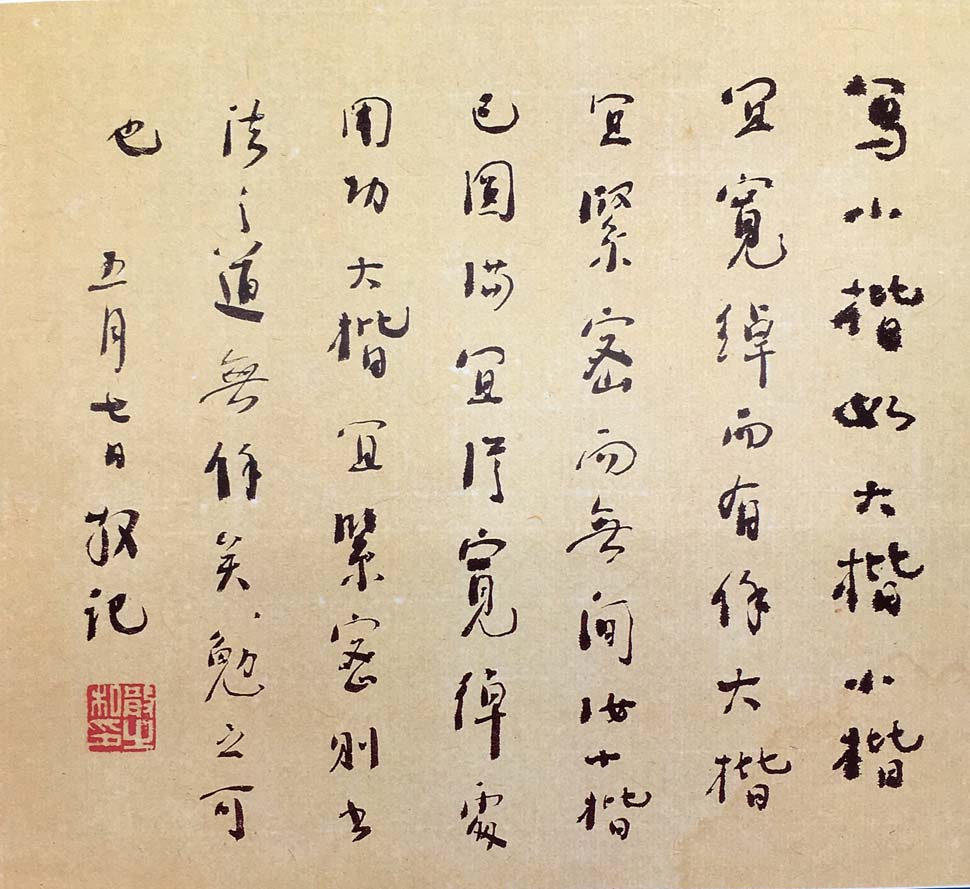 寫小楷如大楷小楷
宜寬綽而有餘大楷
宜緊密而無間汝小楷
已圓滿宜從寬綽處
用功大楷宜緊密則書
法之道無餘矣勉之可
也 五月七日 散記
散之私印